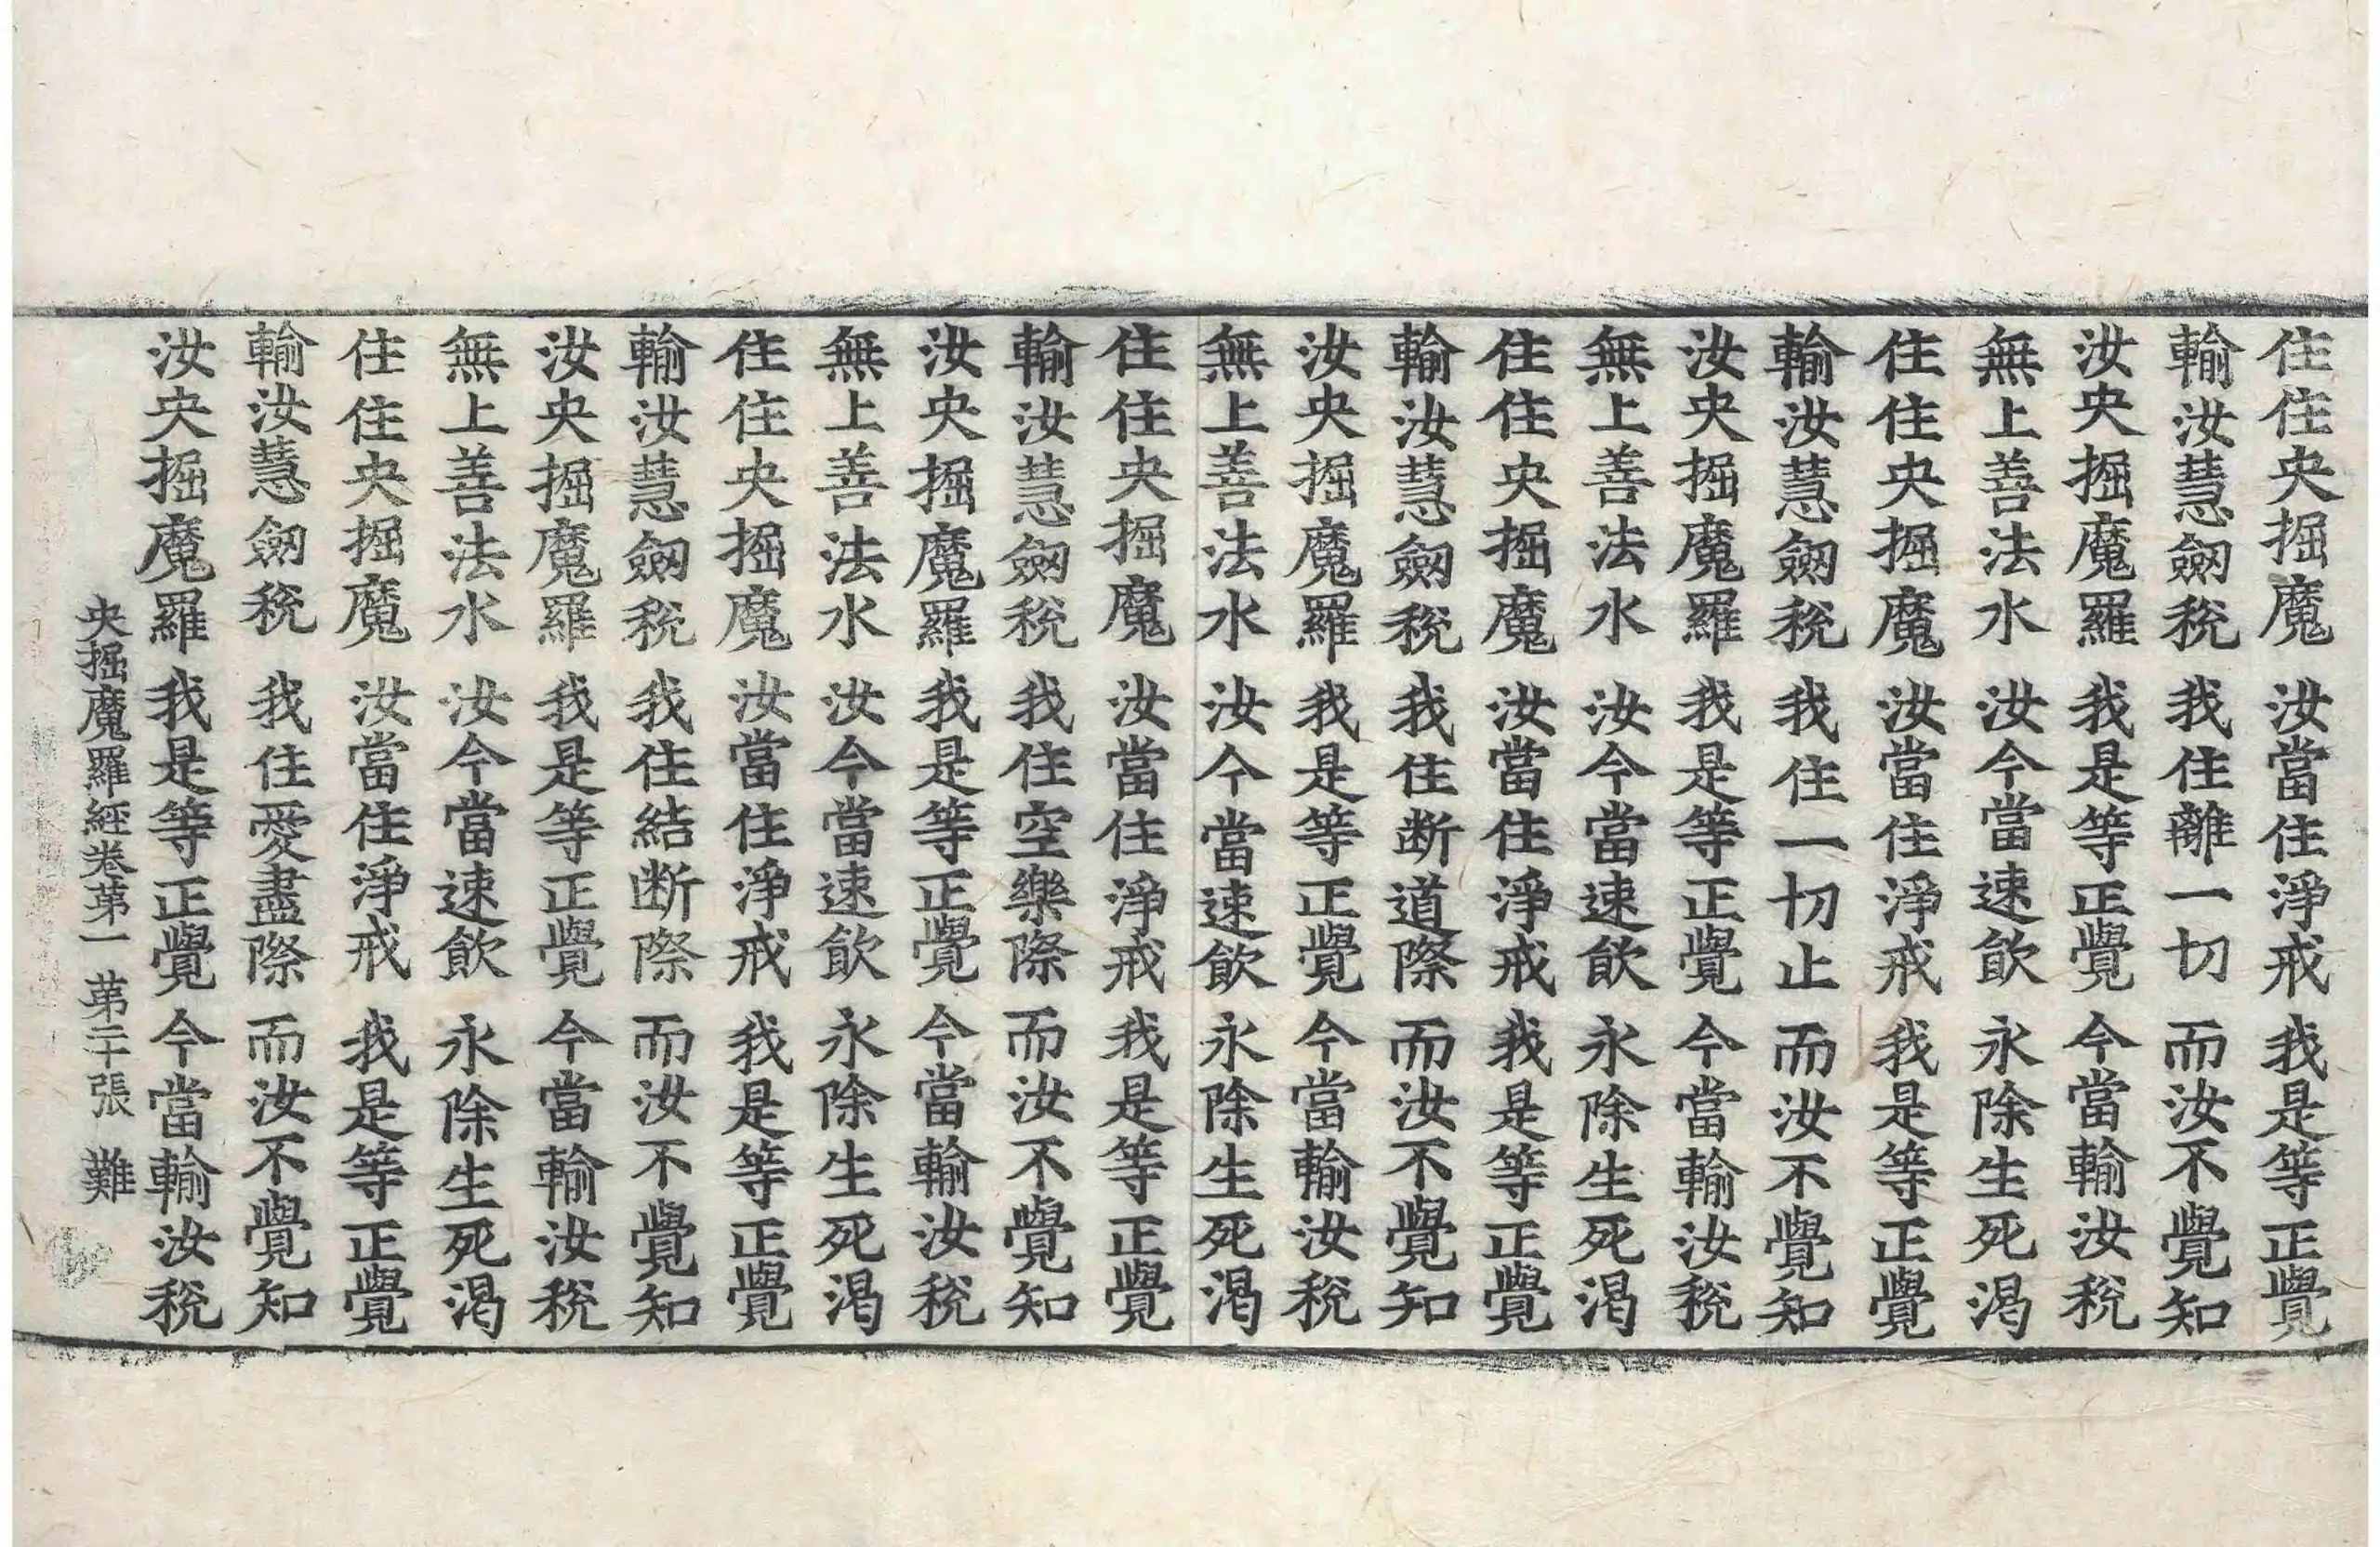 住住央掘魔 汝當住淨戒 我是等正覺
輸汝慧劒稅 我住離一切 而汝不覺知
汝央掘魔羅 我是等正覺 今當輸汝稅
無上善法水 汝今當速飲 永除生死渴
住住央掘魔 汝當住淨戒 我是等正覺
輸汝慧劒稅 我住一切止 而汝不覺知
汝央掘魔羅 我是等正覺 今當輸汝稅
無上善法水 汝今當速飲 永除生死渴
住住央掘魔 汝當住淨戒 我是等正覺
輸汝慧劒稅 我住断道際 而汝不覺知
汝央掘魔羅 我是等正覺 今當輸汝稅
無上善法水 汝今當速飲 永除生死渴
住住央掘魔 汝當住淨戒 我是等正覺
輸汝慧劒稅 我住空樂際 而汝不覺知
汝央掘魔羅 我是等正覺 今當輸汝稅
無上善法水 汝今當速飲 永除生死渴
住住央掘魔 汝當住淨戒 我是等正覺
輸汝慧劒稅 我住結断際 而汝不覺知
汝央掘魔羅 我是等正覺 今當輸汝稅
無上善法水 汝今當速飲 永除生死渴
住住央掘魔 汝當住淨戒 我是等正覺
輸汝慧劒稅 我住愛盡際 而汝不覺知
汝央掘魔羅 我是等正覺 今當輸汝稅
央掘魔羅經卷第一 第二十張 難